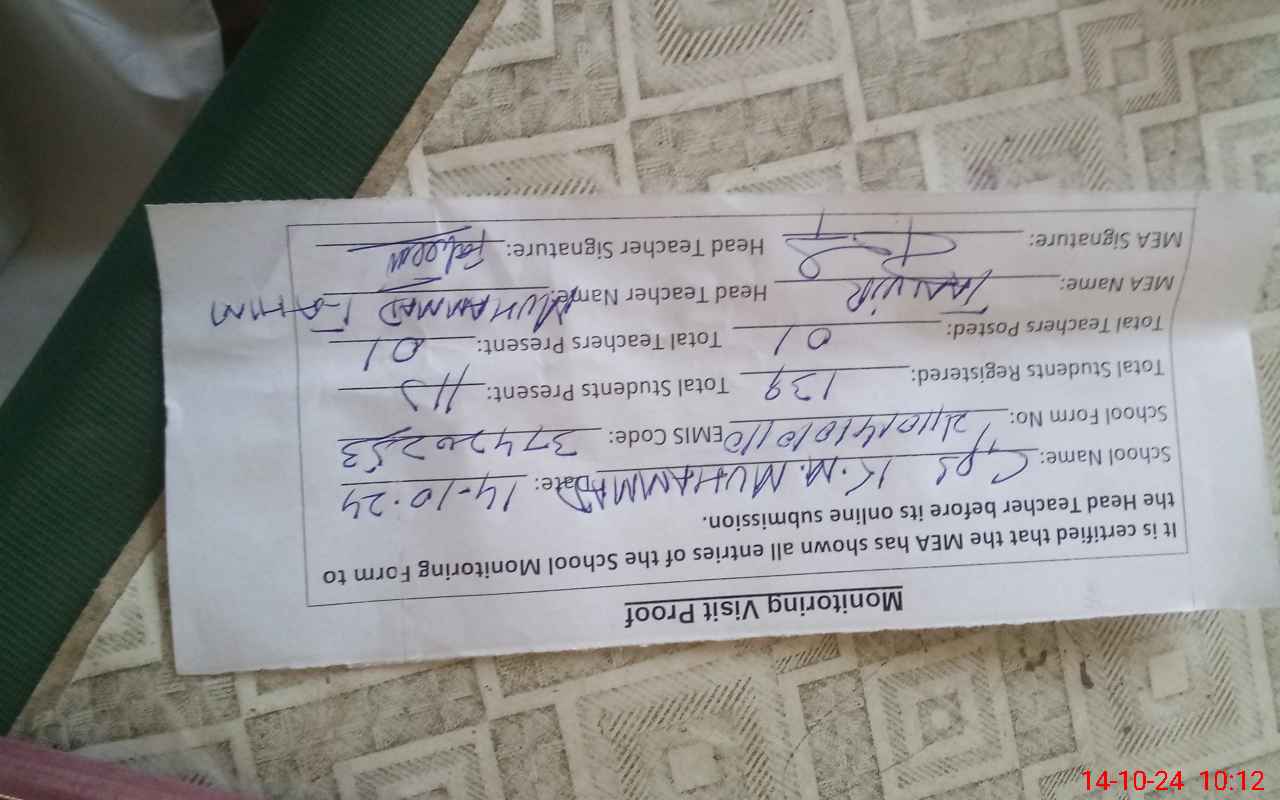 Monitoring Visit Proof
It is certified that the MEA has shown all entries of the School Monitoring Form to
the Head Teacher before its online submission.
School Name: GPS K.M. MUHAMMAD Date: 14-10-24
School Form No: EMIS Code:
Total Students Registered: 139 Total Students Present:
Total Teachers Posted: 01 Total Teachers Present: 01
MEA Name: TANWIR Head Teacher Name: MUHAMMAD FAHIM
MEA Signature: Head Teacher Signature: Faheem
14-10-24 10:12